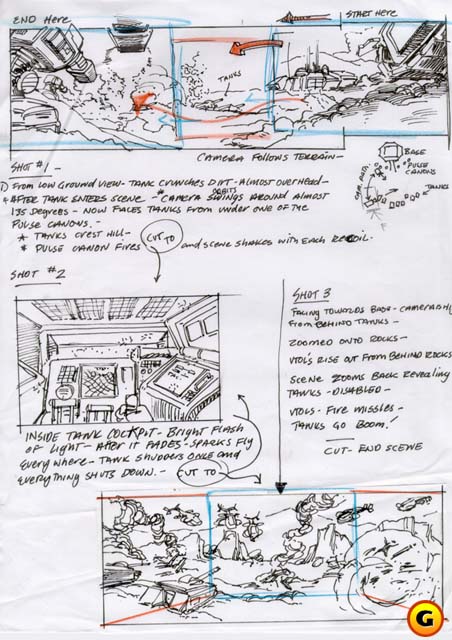 END Here
START Here
TANKS
CAMERA FOLLOWS TERRAIN-
BASE
PULSE CANONS
TANKS
SHOT #1-
① FROM LOW GROUND VIEW- TANK CRUNCHES DIRT- ALMOST OVERHEAD-
* AFTER TANK ENTERS SCENE- *CAMERA SWINGS ORBITS AROUND ALMOST
135 DEGREES - NOW FACES TANKS FROM UNDER ONE OF THE
PULSE CANONS.-
* TANKS CREST HILL-
* PULSE CANON FIRES CUT TO and SCENE SHAKES WITH EACH RECOIL.
SHOT #2
SHOT 3
FACING TOWARDS BASE- CAMERA IS HIGH
FROM BEHIND TANKS-
ZOOMED ONTO ROCKS-
VTOL'S RISE OUT FROM BEHIND ROCKS
SCENE ZOOMS BACK REVEALING
TANKS- DISABLED-
VTOLS- FIRE MISSLES-
TANKS GO BOOM!
CUT- END SCENE
INSIDE TANK COCKPIT- BRIGHT FLASH
OF LIGHT- AFTER IT FADES- SPARKS FLY
EVERYWHERE- TANK SHUDDERS ONCE and
EVERYTHING SHUTS DOWN.- CUT TO
G